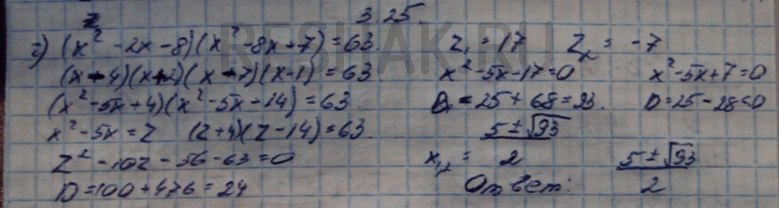 3.25
г) (x² - 2x - 8)(x² - 8x + 7) = 63
(x - 4)(x + 2)(x - 7)(x - 1) = 63
(x² - 5x + 4)(x² - 5x - 14) = 63
x² - 5x = z (z + 4)(z - 14) = 63
z² - 10z - 56 - 63 = 0
D = 100 + 476 = 24
z₁ = 17 z₂ = -7
x² - 5x - 17 = 0 x² - 5x + 7 = 0
D = 25 + 68 = 93. D = 25 - 28 < 0
x₁,₂ = (5 ± √93) / 2
Ответ: (5 ± √93) / 2
RESHAK.RU